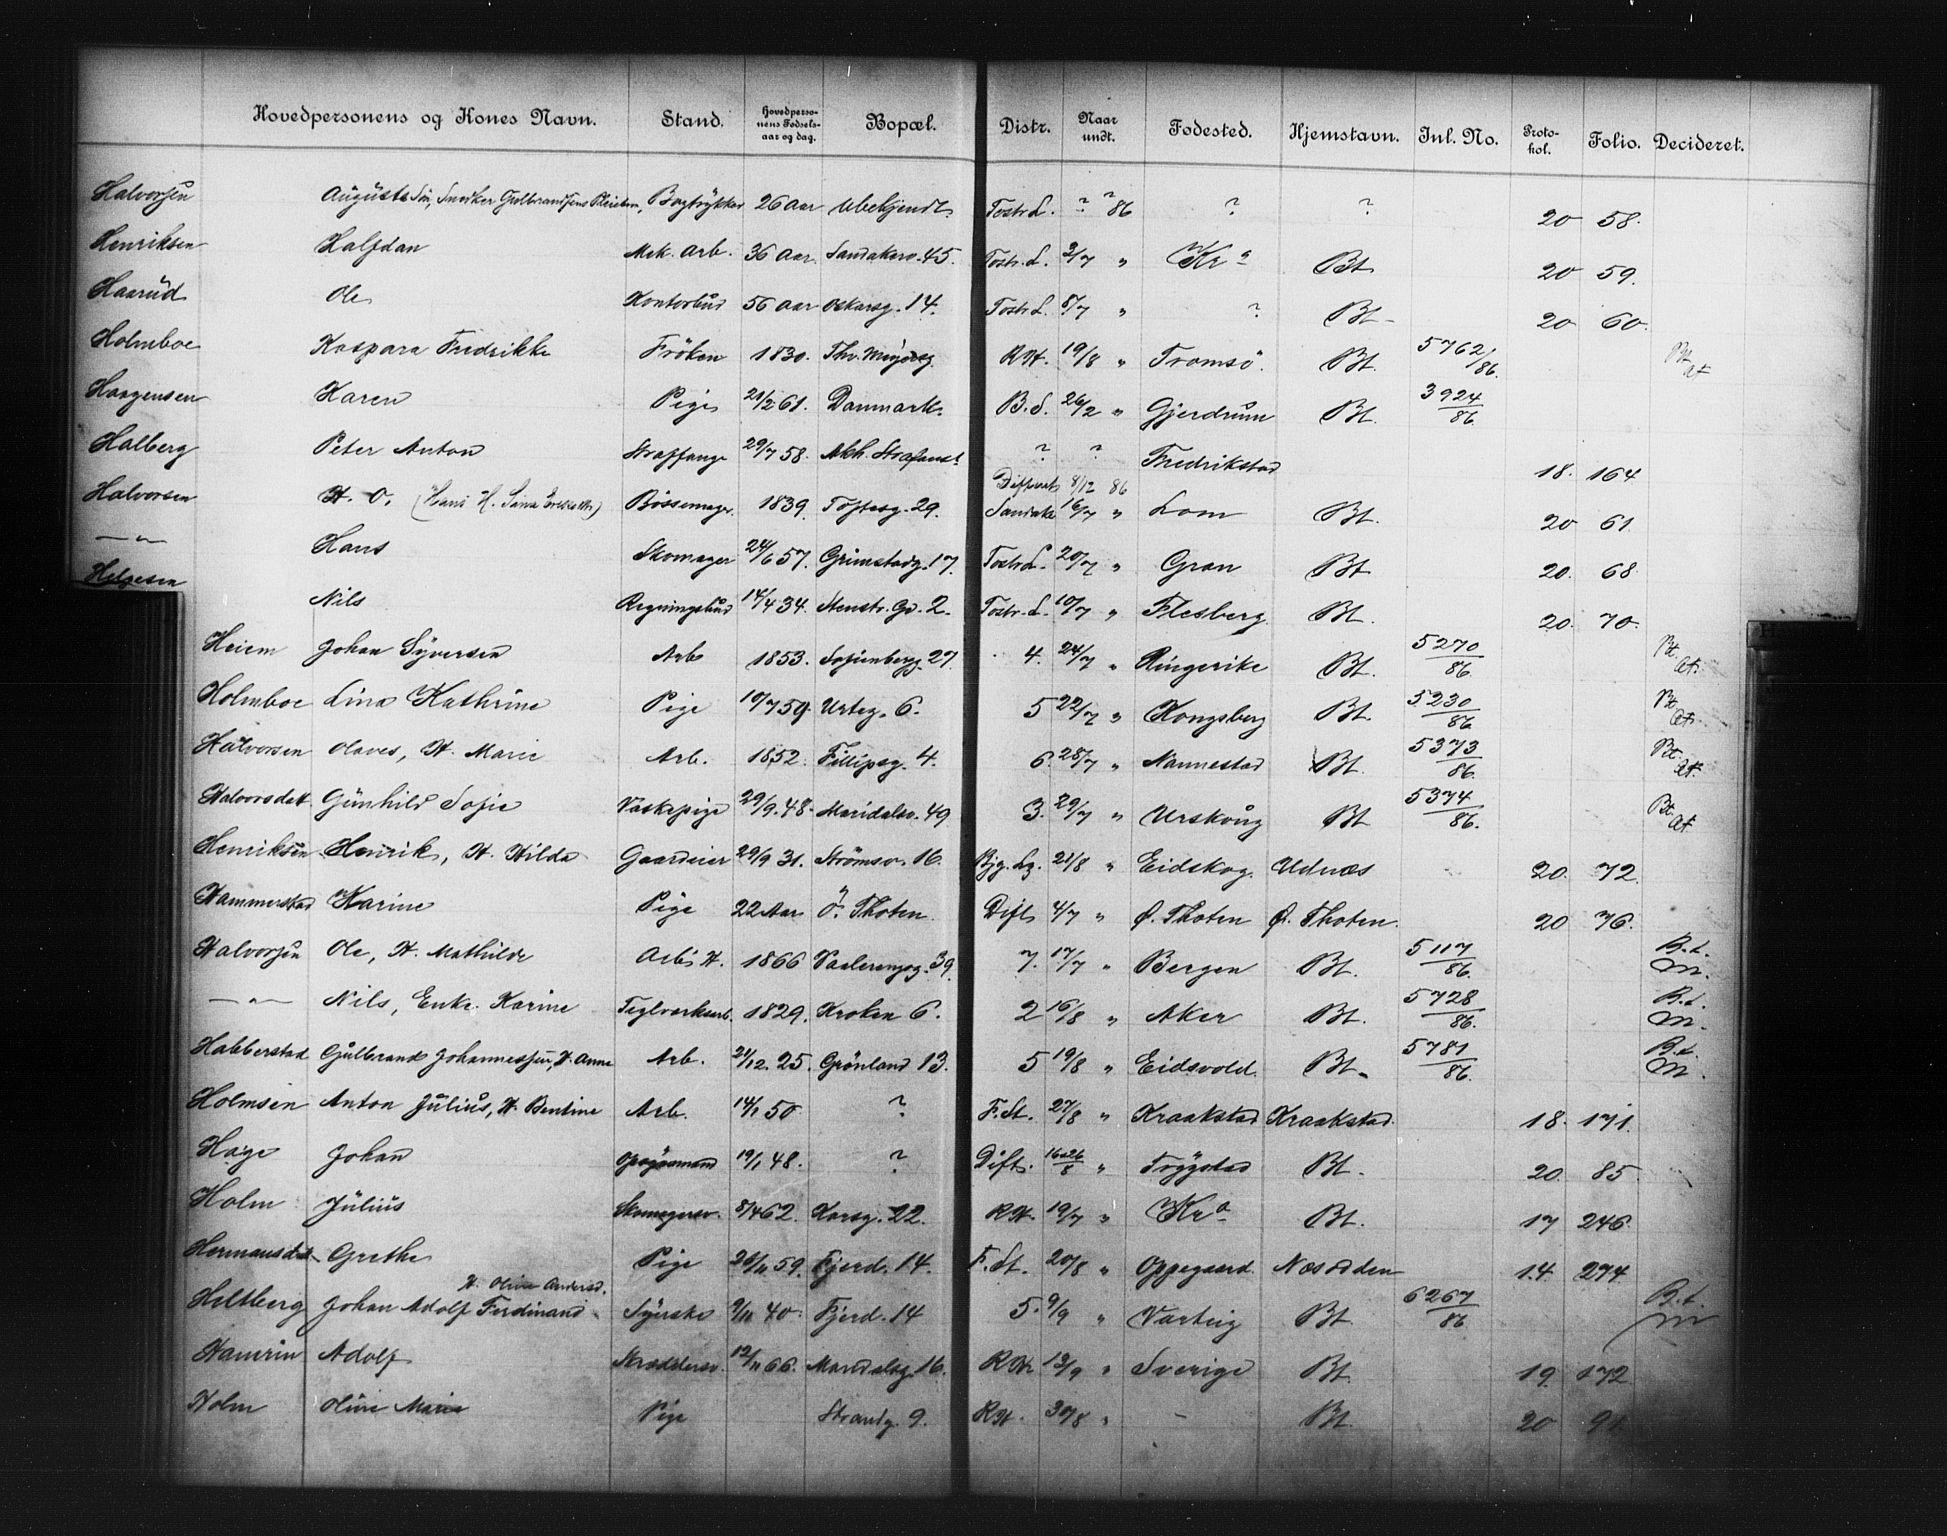 Hovedpersonens og Kones Navn. Stand. Hovedperso-nens Fødsels-aar og dag. Bopæl. Distr. Naar undt. Fødested. Hjemstavn. Jnl. No. Proto-kol. Folio. Decideret.
Halvorsen Auguste Bogtrykker 26 Aar Ubekjendt Tostr. L. ? ? 86 ? ? 20 58.
Henriksen Halfdan Mek. Arb. 36 Aar Sandakerv. 45. Tostr. L. 3/7 " Kra Bt. 20 59.
Haarud Ole Kontorbud 56 Aar Oskarsg. 14. Tostr. L. 8/7 " ? Bt. 20 60.
Holmboe Kaspara Fredrikke Frøken 1830. Th. Meyersg. R.H. 19/8 " Tromsö. Bt. 5762/86. Bt. at
Haagensen Karen Pige 21/2 61. Danmark. B.S. 26/2 " Gjerdrum Bt. 3924/86.
Halberg Peter Anton Straffange 29/7 58. Akh. Strafanst. ? ? Fredrikstad 18. 164
Halvorsen H. O. Bøssemager. 1839. Toftesg. 29. 8/12 86 16/7 " Lom Bt. 20 61.
—"— Hans Skomager 24/6 57. Grimstadg. 17. Tostr. L. 20/7 " Gran Bt. 20. 68
Helgesen Nils Regningsbud 14/4 34. Stenstr. Gd. 2. Tostr. L. 10/7 " Flesberg. Bt. 20. 70.
Heiem Johan Syversen Arb 1853. Sofienbergg. 27. 4. 24/7 " Ringerike Bt. 5270/86. Bt. at.
Holmboe Lina Kathrine Pige 10/7 59. Urteg. 6. 5 22/7 " Kongsberg Bt. 5230/86 Bt. at.
Halvorsen Olaves, H. Marie Arb. 1852. Fillipsg. 4. 6. 28/7 " Nannestad Bt. 5373/86. Bt. at.
Halvorsdatt. Gunhild Sofie Vaskepige 29/9. 48. Maridalsv. 49 3. 29/7 " Urskoug Bt 5374/86. Bt. at
Henriksen Henrik, H. Hilda Gaardeier 29/9 31. Strømsv. 16. Byg. Lg. 21/8 " Eidskog. Udnæs 20. 72.
Hammerstad Karine Pige 22 Aar Ö. Thoten Dift 4/7 " Ø. Thoten Ø. Thoten. 20 76.
Halvorsen Ole, H. Mathilde Arb's H. 1866 Vaalerengg. 39. 7. 17/7 " Bergen Bt. 5117/86. B.t. m.
—"— Nils, Enke Karine Teglverksarb. 1829. Kroken 6. 2 16/8 " Aker Bt. 5728/86. B.t. m.
Habberstad Gulbrand Johannessen, H. Anne Arb. 21/12. 25. Grönland 13. 5 19/8 " Eidsvold. Bt. 5781/86. B.t. m.
Holmsen Anton Julius, H. Bentine Arb. 14/1 50 ? F. St. 27/8 " Kraakstad Kraakstad. 18. 171.
Hage Johan Opsynsmand 19/1 48. ? Dift. 16 a 26/8 " Trygstad Bt. 20. 85.
Holm Julius Skomagersv. 8/4 62. Korsg. 22. R.H. 19/7 " Kra Bt. 17 246.
Hermansdat. Grethe Pige 26/11 59. Fjerd. 14. F. St. 20/8 " Oppegaard. Næsodden 14. 274.
H. Oline Andersd.
Hiltberg Johan Adolf Ferdinand Tyerske 9/11 40. Fjerd. 14 5. 9/9 " Varteig Bt. 6267/86 B.t. m
Hamrin Adolf Skræddersv. 12/11 66. Maridalsg. 16. R.H. 13/9 " Sverige Bt. 19. 172.
Holm Oline Marie Pige Strandg. 9. R.H. 30/8 " — Bt. 20 91.